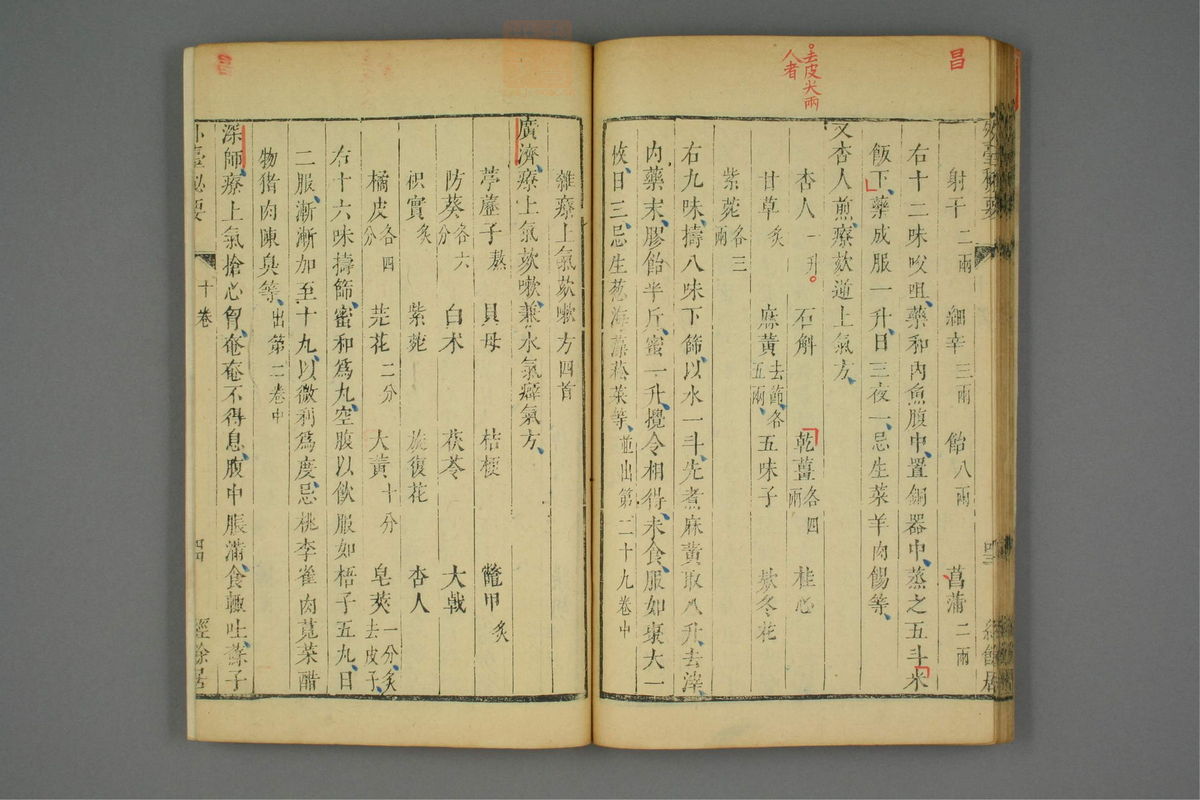 昌
去皮尖兩
人者
外臺秘要
四三
經餘居
射干二兩 細辛三兩 飴八兩 菖蒲二兩
右十二味㕮咀藥和內魚腹中置銅器中蒸之五斗米
飯下藥成服一升日三夜一忌生菜羊肉餳等
又杏人煎療欬逆上氣方
杏人一升 石斛 乾薑各四兩 桂心
甘草炙 麻黃去節各五兩 五味子 欵冬花
紫菀各三兩
右九味擣八味下篩以水一斗先煮麻黃取八升去滓
內藥末膠飴半斤蜜一升攪令相得未食服如棗大一
枚日三忌生葱海藻菘菜等並出第二十九卷中
雜療上氣欬嗽方四首
廣濟療上氣欬嗽兼水氣癖氣方
葶藶子熬 貝母 桔梗 鼈甲炙
防葵各六分 白朮 茯苓 大戟
枳實炙 紫菀 旋復花 杏人
橘皮各四分 芫花二分 大黃十分 皂莢一分炙去皮子
右十六味擣篩蜜和爲丸空腹以飲服如梧子五丸日
二服漸漸加至十丸以微利爲度忌桃李雀肉莧菜醋
物猪肉陳臭等出第二卷中
深師療上氣搶心胷奄奄不得息腹中脹滿食輒吐蘇子
外臺秘要
十卷
四四
經餘居